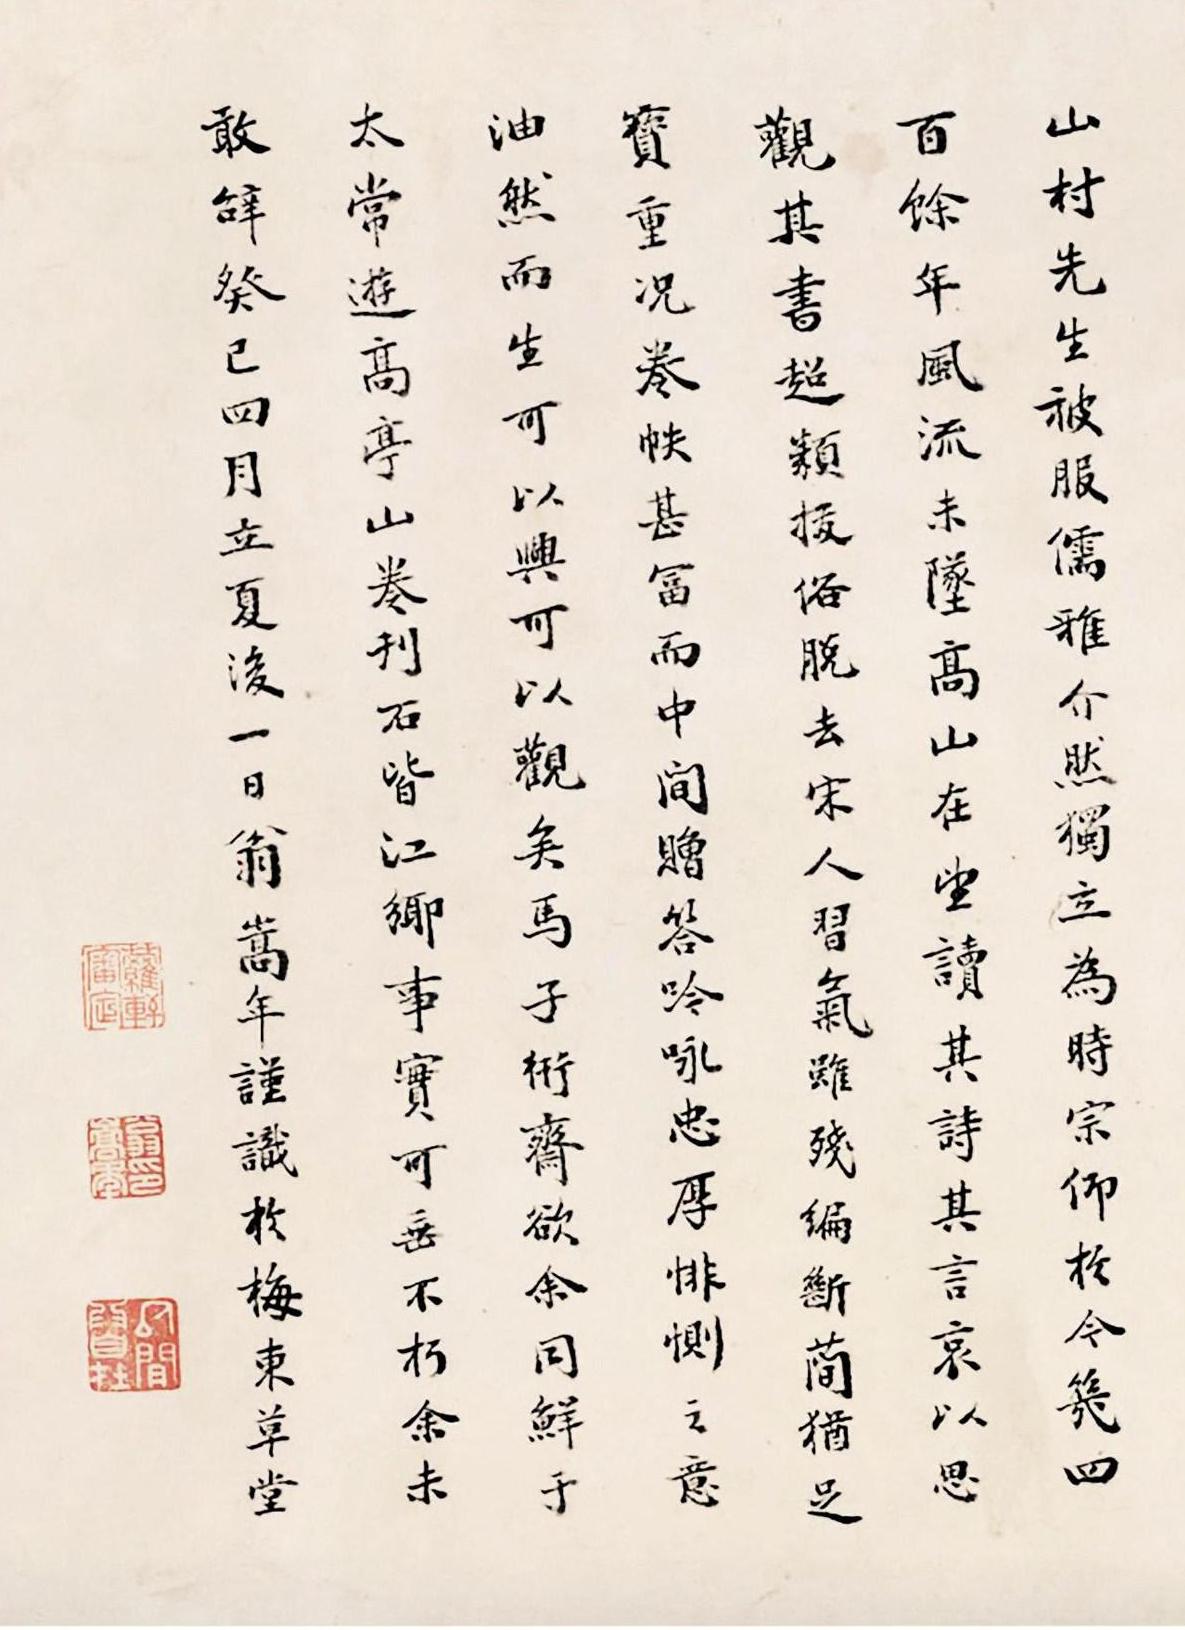 山村先生被服儒雅介然獨立為時宗仰於今幾四
百餘年風流未墜高山在望讀其詩其言哀以思
觀其書超類拔俗脫去宋人習氣雖殘編斷蕳猶足
寶重況卷帙甚冨而中間贈答吟咏忠厚悱惻之意
油然而生可以興可以觀矣馬子衎齋欲余同鮮于
太常遊高亭山卷刊石皆江鄉事實可垂不朽余未
敢辭癸巳四月立夏後一日翁嵩年謹識於梅東草堂
蘿軒
翁印
嵩年